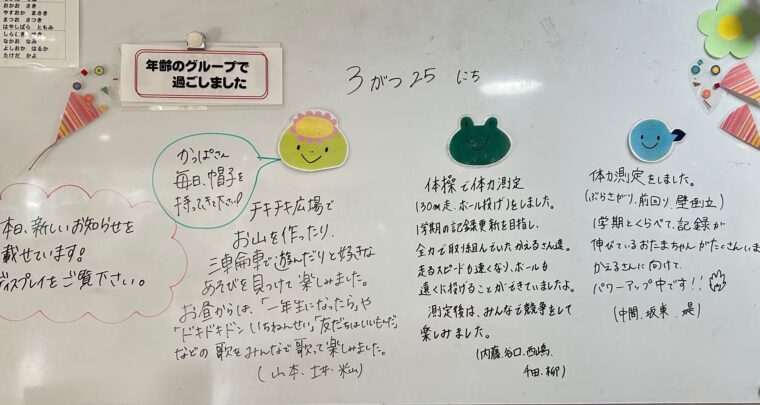 おかお　さき
やすおか　まさき
まつお　さつき
はやしばら　ともみ
なかお　なみ
よしおか　はるか
たけだ　かよ
年齢のグループで
過ごしました
3がつ25にち
かっぱさん
毎日、帽子を
持ってきて下さい
本日、新しいお知らせを
載せています!
ディスプレイをご覧下さい。
チキチキ広場で
お山を作ったり、
三車輪車で遊んだりと好きな
あそびを見つけて楽しみました。
お昼からは、「一年生になったら」や
「ドキドキドン いちねんせい」「友だちはいいもんだ」
などの歌をみんなで歌って楽しみました。
(山本、土井、米山)
体操で体力測定
(30m走、ボール投げ)をしました。
1学期の記録更新を目指し、
全力で取り組んでいたかえるさん達。
走るスピードも速くなり、ボールも
遠くに投げることができていましたよ。
測定後は、みんなで競争をして
楽しみました。
(内藤、谷口、西嶋、
千田、柳)
体力測定をしました。
(ぶらさがり、前回り、壁倒立)
1学期とくらべて、記録が
伸びているおたまちゃんがたくさんいま
かえるさんに向けて、
パワーアップ中です!!
(中間、坂東、堤)